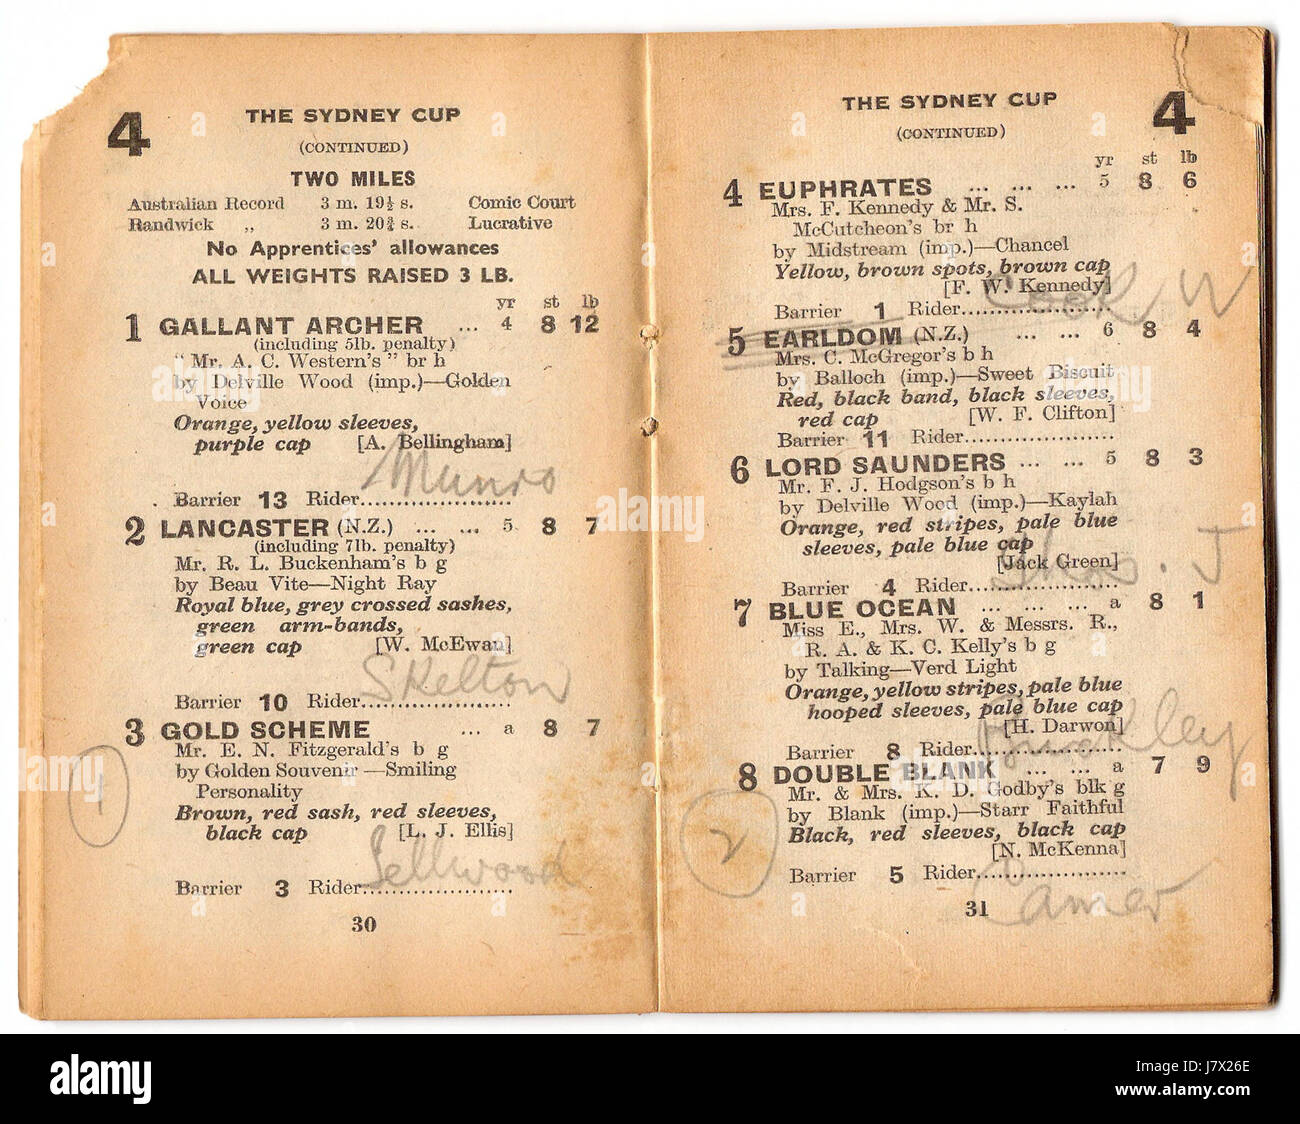 4
THE SYDNEY CUP
(CONTINUED)
TWO MILES
Australian Record 3 m. 19½ s. Comic Court
Randwick „ 3 m. 20¾ s. Lucrative
No Apprentices' allowances
ALL WEIGHTS RAISED 3 LB.
yr st lb
1 GALLANT ARCHER ... 4 8 12
(including 5lb. penalty)
"Mr. A. C. Western's" br h
by Delville Wood (imp.)—Golden
Voice
Orange, yellow sleeves,
purple cap [A. Bellingham]
Munro
Barrier 13 Rider....................
2 LANCASTER (N.Z.) ... ... 5 8 7
(including 7lb. penalty)
Mr. R. L. Buckenham's b g
by Beau Vite—Night Ray
Royal blue, grey crossed sashes,
green arm-bands,
green cap [W. McEwan]
Skelton
Barrier 10 Rider....................
3 GOLD SCHEME ... a 8 7
Mr. E. N. Fitzgerald's b g
by Golden Souvenir—Smiling
Personality
1
Brown, red sash, red sleeves,
black cap [L. J. Ellis]
Sellwood
Barrier 3 Rider....................
30
THE SYDNEY CUP
(CONTINUED)
4
yr st lb
4 EUPHRATES ... ... ... 5 8 6
Mrs. F. Kennedy & Mr. S.
McCutcheon's br h
by Midstream (imp.)—Chancel
Yellow, brown spots, brown cap
[F. W. Kennedy]
Cook W
Barrier 1 Rider....................
5 EARLDOM (N.Z.) ... ... 6 8 4
Mrs. C. McGregor's b h
by Balloch (imp.)—Sweet Biscuit
Red, black band, black sleeves,
red cap [W. F. Clifton]
Barrier 11 Rider....................
6 LORD SAUNDERS ... ... 5 8 3
Mr. F. J. Hodgson's b h
by Delville Wood (imp.)—Kaylah
Orange, red stripes, pale blue
sleeves, pale blue cap
[Jack Green]
Thos. J
Barrier 4 Rider....................
7 BLUE OCEAN ... ... ... a 8 1
Miss E., Mrs. W. & Messrs. R.,
R. A. & K. C. Kelly's b g
by Talking—Verd Light
Orange, yellow stripes, pale blue
hooped sleeves, pale blue cap
[H. Darwon]
Buckley
Barrier 8 Rider....................
8 DOUBLE BLANK ... ... a 7 9
Mr. & Mrs. K. D. Godby's blk g
by Blank (imp.)—Starr Faithful
Black, red sleeves, black cap
2
[N. McKenna]
Barrier 5 Rider....................
31
alamy
Image ID: J7X26E
www.alamy.com